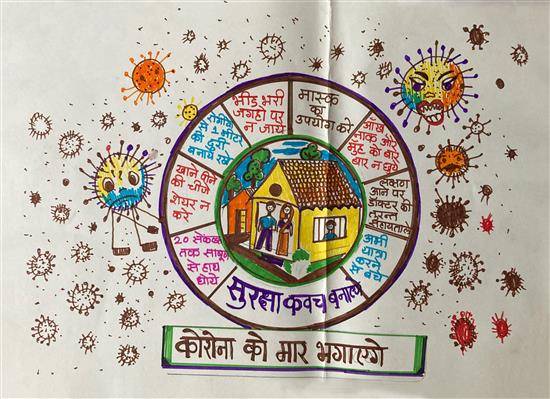 मास्क
का
उपयोग करे
आँख
नाक और
मुह को बार
बार न छुये
लक्षण
आने पर
डॉक्टर की
तुरन्त
अभी
यात्रा
करने
से बचे
सुरक्षा कवच बनाए
20 सेकेण्ड
तक साबुन
से हाथ
धोये
खाने पीने
की चीजे
शेयर न
करे
की दूरी
बनाये रखे
भीड़ भरी
जगहो पर
न जाये
कोरोना को मार भगाएगे